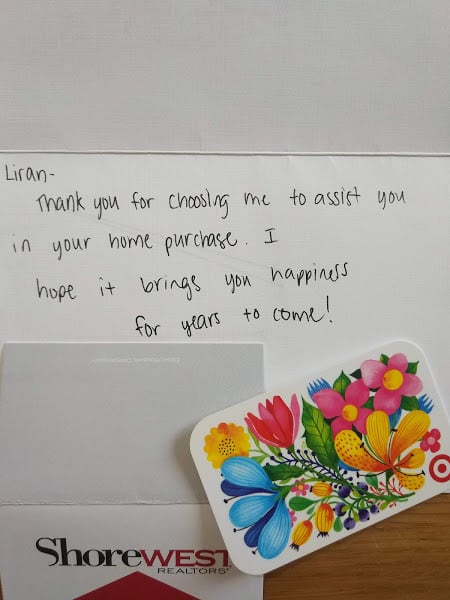 Liran-
Thank you for choosing me to assist you
in your home purchase. I
hope it brings you happiness
for years to come!
ShoreWEST
REALTORS®